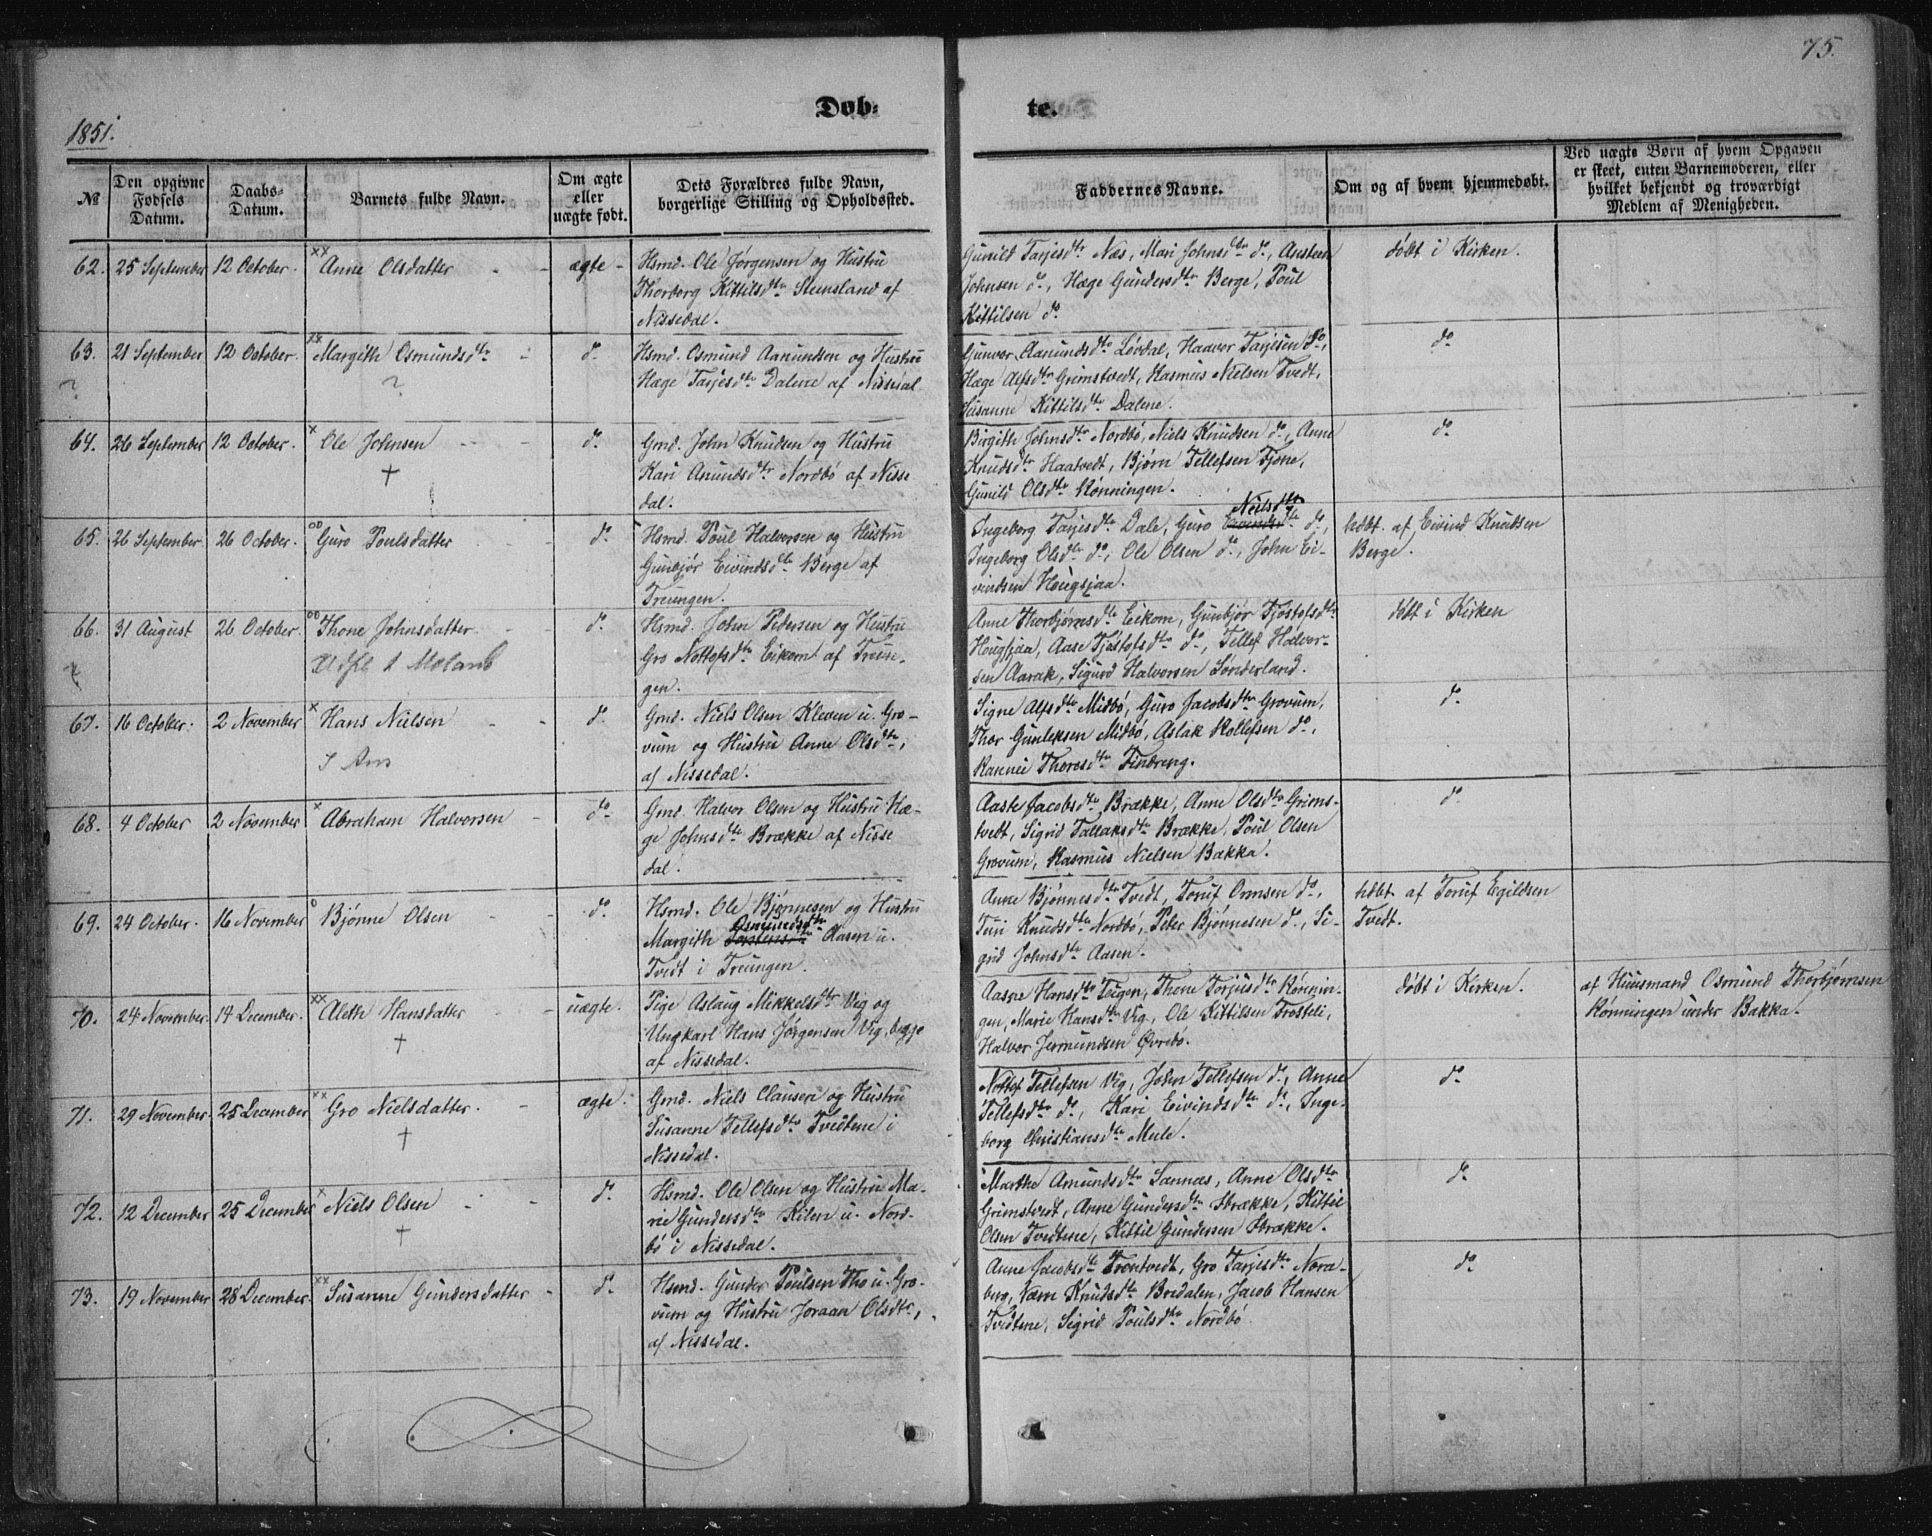 75.
Døb-
te.
1851.
№
Den opgivne Fødsels Datum.
Daabs-Datum.
Barnets fulde Navn.
Om ægte eller uægte født.
Dets Forældres fulde Navn, borgerlige Stilling og Opholdssted.
Faddernes Navne.
Om og af hvem hjemmedøbt.
Ved uægte Børn af hvem Opgaven er skeet, enten Barnemoderen, eller hvilket bekjendt og troværdigt Medlem af Menigheden.
62. 25 September 12 October. xx Anne Olsdatter - - ægte -
Hsmd. Ole Jørgensen og Hustru
Thorborg Kittilsdtr Stensland af
Nissedal.
Gunild Tarjesdtr Næs, Mari Johnsdtr do, Aasteen
Johnsen do, Hæge Gundersdtr Berge, Poul
Kittilsen do
døbt i Kirken.
63. 21 September 12 October. xx Margith Osmundsdtr - do
?
?
Hsmd. Osmund Aanundsen og Hustru
Hæge Tarjesdtr Dalene af Nissedal
Gunvor Aanundsdtr Løvdal, Haavor Tarjesen do,
Hæge Alfsdtr Grimstvedt, Rasmus Nielsen Tvedt,
Susanne Kittilsdtr Dalene.
do
64. 26 September 12 October. x Ole Johnsen - - do
†
Gmd. John Knudsen og Hustru
Kari Anundsdtr Nordbø af Nisse
dal.
Birgith Johnsdtr Nordbø, Niels Knudsen do, Anne
Knudsdtr Haatvedt, Bjørn Tellefsen Fjone,
Gunild Olsdtr Rønningen.
do
65. 26 September 26 October. oo Guro Poulsdatter - do
Hsmd. Poul Halvorsen og Hustru
Gunbjør Eivindsdtr Berge af
Treungen.
Nielsdtr
Ingeborg Tarjesdtr Dale, Guro Eivindsdtr do,
Ingeborg Olsdtr do, Ole Olsen do, John Ei-
vindsen Hougsjaa.
hdbt. af Eivind Knutsen
Berge.
66. 31 August 26 October. oo Thone Johnsdatter - do
Udfl t Moland
Hsmd. John Petersen og Hustru
Gro Nottofsdtr Eikom af Treun-
gen.
Anne Thorbjørnsdtr Eikom, Gunbjør Tjostofsdtr
Hougsjaa, Aase Tjostofsdtr do, Tellef Halvor-
sen Aarak, Sigurd Halvorsen Sønderland.
døbt i Kirken
67. 16 October. 2 November x Hans Nielsen - - do
Gmd. Niels Olsen Kleven u. Gro-
vum og Hustru Anne Olsdtr,
af Nissedal.
Signe Alfsdtr Midbø, Guro Jacobsdtr Grovum,
Thor Gunleksen Midbø, Aslak Rollefsen do,
Rannei Thoresdtr Tindreng.
do
68. 4 October 2 November x Abraham Halvorsen - do
Gmd. Halvor Olsen og Hustru Hæ-
ge Johnsdtr Brække af Nisse
dal.
Aaste Jacobsdtr Brække, Anne Olsdtr Grims-
tvedt, Sigrid Tallaksdtr Brække, Poul Olsen
Grovum, Rasmus Nielsen Bakka.
do
69. 24 October. 16 November o Bjønne Olsen - - do
Hsmd. Ole Bjønnesen og Hustru
Osmundsdtr
Margith Torstensdtr Aasen u.
Tvedt i Treungen.
Anne Bjønnesdtr Tvedt, Toruf Ormsen do,
Turi Knudsdtr Nordbø, Peter Bjønnesen do, Si-
grid Johnsdtr Aasen.
hdbt. af Toruf Egildsen
Tvedt.
70. 24 November. 14 December. xx Aleth Hansdatter - uægte.
†
Pige Aslaug Mikkelsdtr Vig og
Ungkarl Hans Jørgensen Vig, begge
af Nissedal.
Aasne Hansdtr Teigen, Thone Torjusdtr Rønnin-
gen, Marie Hansdtr Vig, Ole Kittilsen Trosteli,
Halvor Jermundsen Øvrebø.
døbt i Kirken.
af Huusmand Osmund Thorbjørnsen
Rønningen under Bakka.
71. 29 November. 25 December xx Gro Nielsdatter. - ægte.
†
Gmd. Niels Clausen og Hustru
Susanne Tellefsdtr Tvedtene i
Nissedal.
Nottof Tellefsen Vig, John Tellefsen do, Anne
Tellefsdtr do, Kari Eivindsdtr do, Inge-
borg Christiansdtr Mule.
do
72. 12 December 25 December x Niels Olsen - - do
†
Hsmd. Ole Olsen og Hustru Ma-
rie Gundersdtr Kilen u. Nord-
bø i Nissedal.
Marthe Amundsdtr Sannæs, Anne Olsdtr
Grimstvedt, Anne Gundersdtr Brække, Kittil
Olsen Tvedtene, Kittil Gundersen Brække.
do
73. 19 November 28 December. xx Susanne Gundersdatter - do
Hsmd. Gunder Poulsen Tho u. Gro-
vum og Hustru Joraan Olsdtr,
af Nissedal.
Anne Jacobsdtr Trontvedt, Gro Tarjesdtr Nora-
berg, Jøen Knudsdtr Bredalen, Jacob Hansen
Tvedtene, Sigrid Poulsdtr Nordbø
do